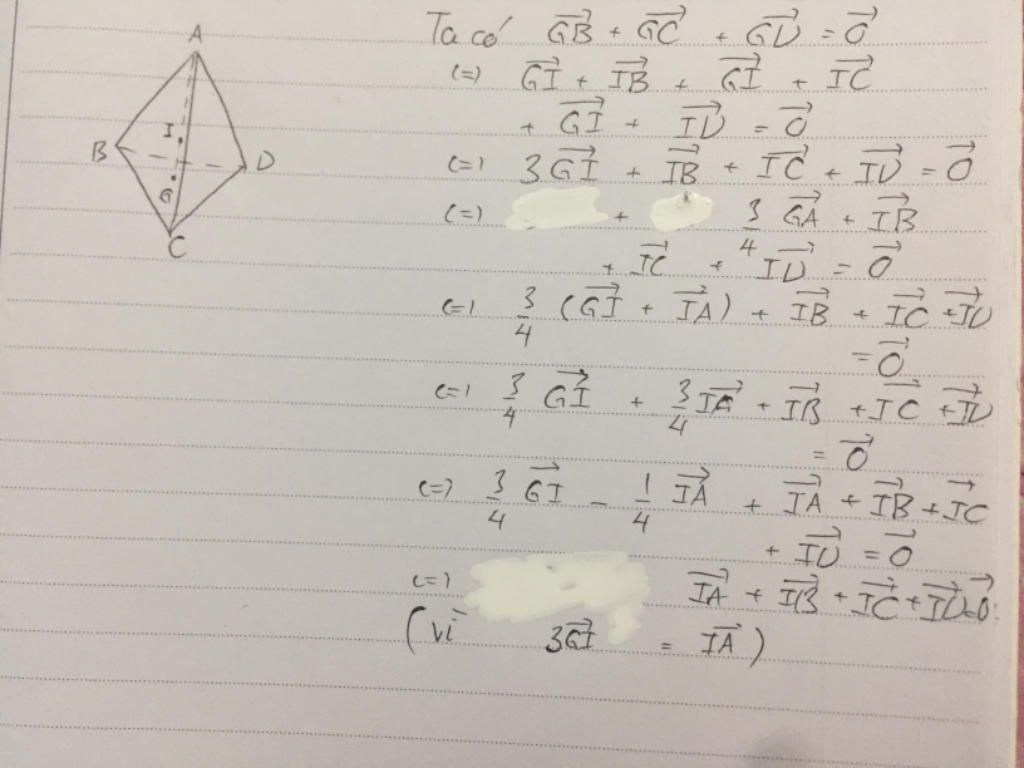 A
B
I
D
G
C
Ta có $\overrightarrow{GB} + \overrightarrow{GC} + \overrightarrow{GD} = \overrightarrow{0}$
(=) $\overrightarrow{GI} + \overrightarrow{IB} + \overrightarrow{GI} + \overrightarrow{IC}$
$+ \overrightarrow{GI} + \overrightarrow{ID} = \overrightarrow{0}$
(=) $3\overrightarrow{GI} + \overrightarrow{IB} + \overrightarrow{IC} + \overrightarrow{ID} = \overrightarrow{0}$
(=) $+ \frac{3}{4} \overrightarrow{GA} + \overrightarrow{IB}$
$+ \overrightarrow{IC} + \overrightarrow{ID} = \overrightarrow{0}$
(=) $\frac{3}{4} (\overrightarrow{GI} + \overrightarrow{IA}) + \overrightarrow{IB} + \overrightarrow{IC} + \overrightarrow{ID}$
$= \overrightarrow{0}$
(=) $\frac{3}{4} \overrightarrow{GI} + \frac{3}{4} \overrightarrow{IA} + \overrightarrow{IB} + \overrightarrow{IC} + \overrightarrow{ID}$
$= \overrightarrow{0}$
(=) $\frac{3}{4} \overrightarrow{GI} - \frac{1}{4} \overrightarrow{IA} + \overrightarrow{IA} + \overrightarrow{IB} + \overrightarrow{IC}$
$+ \overrightarrow{ID} = \overrightarrow{0}$
(=) $\overrightarrow{IA} + \overrightarrow{IB} + \overrightarrow{IC} + \overrightarrow{ID} = \overrightarrow{0}$
(vì $3\overrightarrow{GI} = \overrightarrow{IA}$)